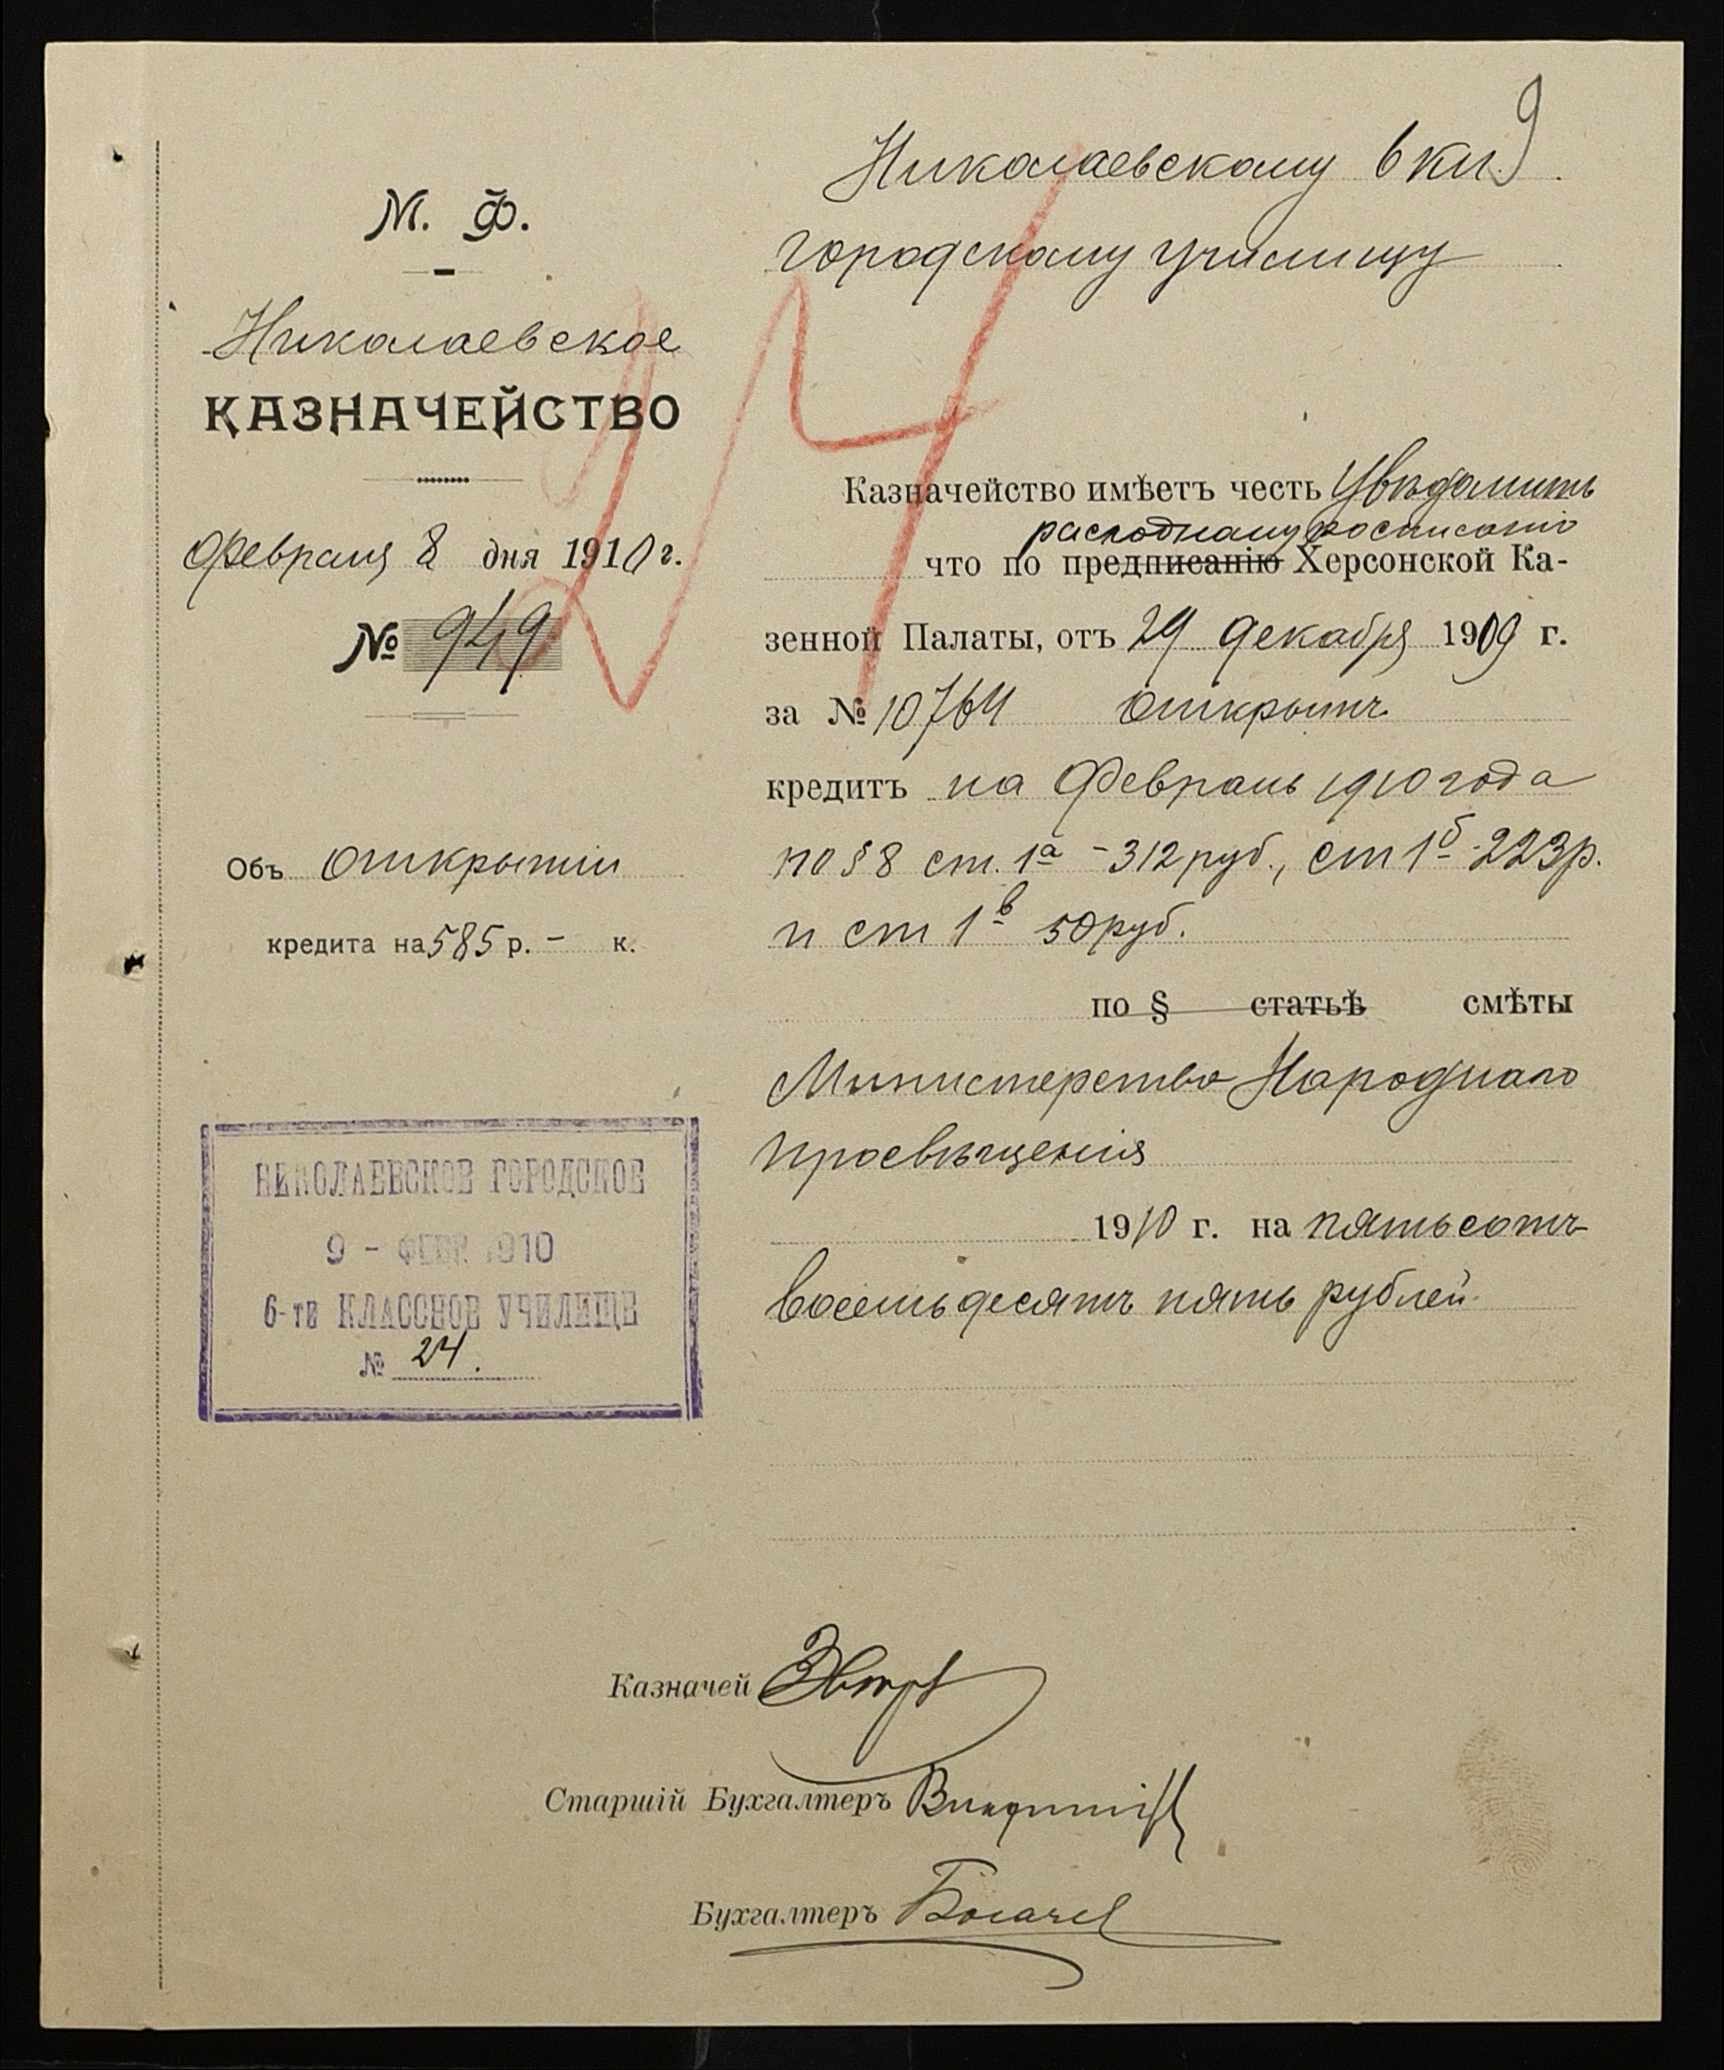 9
М. Ф.
Николаевское
КАЗНАЧЕЙСТВО
Февраля 8 дня 1910 г.
№ 949
Объ открытіи
кредита на 585 р. – к.
НИКОЛАЕВСКОЕ ГОРОДСКОЕ
9 - ФЕВР 1910
6-ти КЛАССНОЕ УЧИЛИЩЕ
№ 24.
24
Николаевскому 6 кл.
городскому училищу
Казначейство имѣетъ честь увѣдомить
расходному росписанію
что по предписанію Херсонской Ка-
зенной Палаты, отъ 29 декабря 1909 г.
за № 10764 открытъ
кредитъ на Февраль 1910 года
по § 8 ст. 1а - 312 руб., ст 1б - 223 р.
и ст 1в 50 руб.
по § статьѣ смѣты
Министерства Народнаго
просвѣщенія
1910 г. на пятьсотъ
восемьдесятъ пять рублей.
Казначей
Старшій Бухгалтеръ
Бухгалтеръ